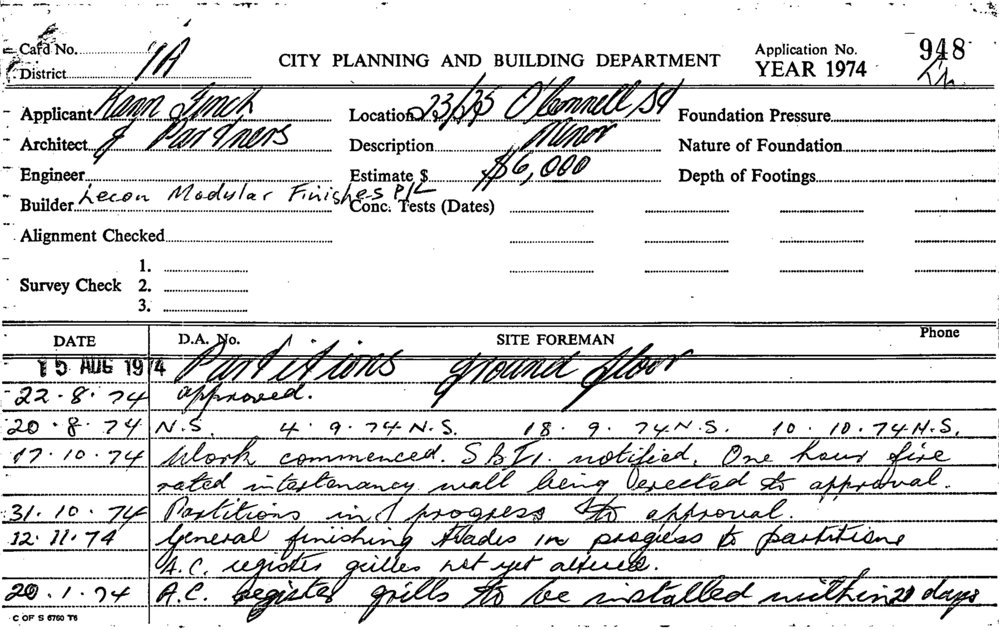 Card No.
District 1A
CITY PLANNING AND BUILDING DEPARTMENT
Application No. 948
YEAR 1974
Applicant Kann Finch
Location 23/25 O'Connell St
Foundation Pressure
Architect & Partners
Description Minor
Nature of Foundation
Engineer
Estimate $ $6,000
Depth of Footings
Builder Lecon Modular Finishes P/L
Conc. Tests (Dates)
Alignment Checked
Survey Check
1.
2.
3.
DATE D.A. No. SITE FOREMAN Phone
15 AUG 1974 Partitions ground floor
22.8.74 approved.
20.8.74 N.S. 4.9.74 N.S. 18.9.74 N.S. 10.10.74 N.S.
17.10.74 Work commenced. notified. One hour fire
rated intertenancy wall being erected to approval.
31.10.74 Partitions in progress to approval.
12.11.74 General finishing trades in progress to partitions
A.C. register grilles not yet altered.
20.1.74 A.C. register grills to be installed within 21 days
C OF S 6760 T6